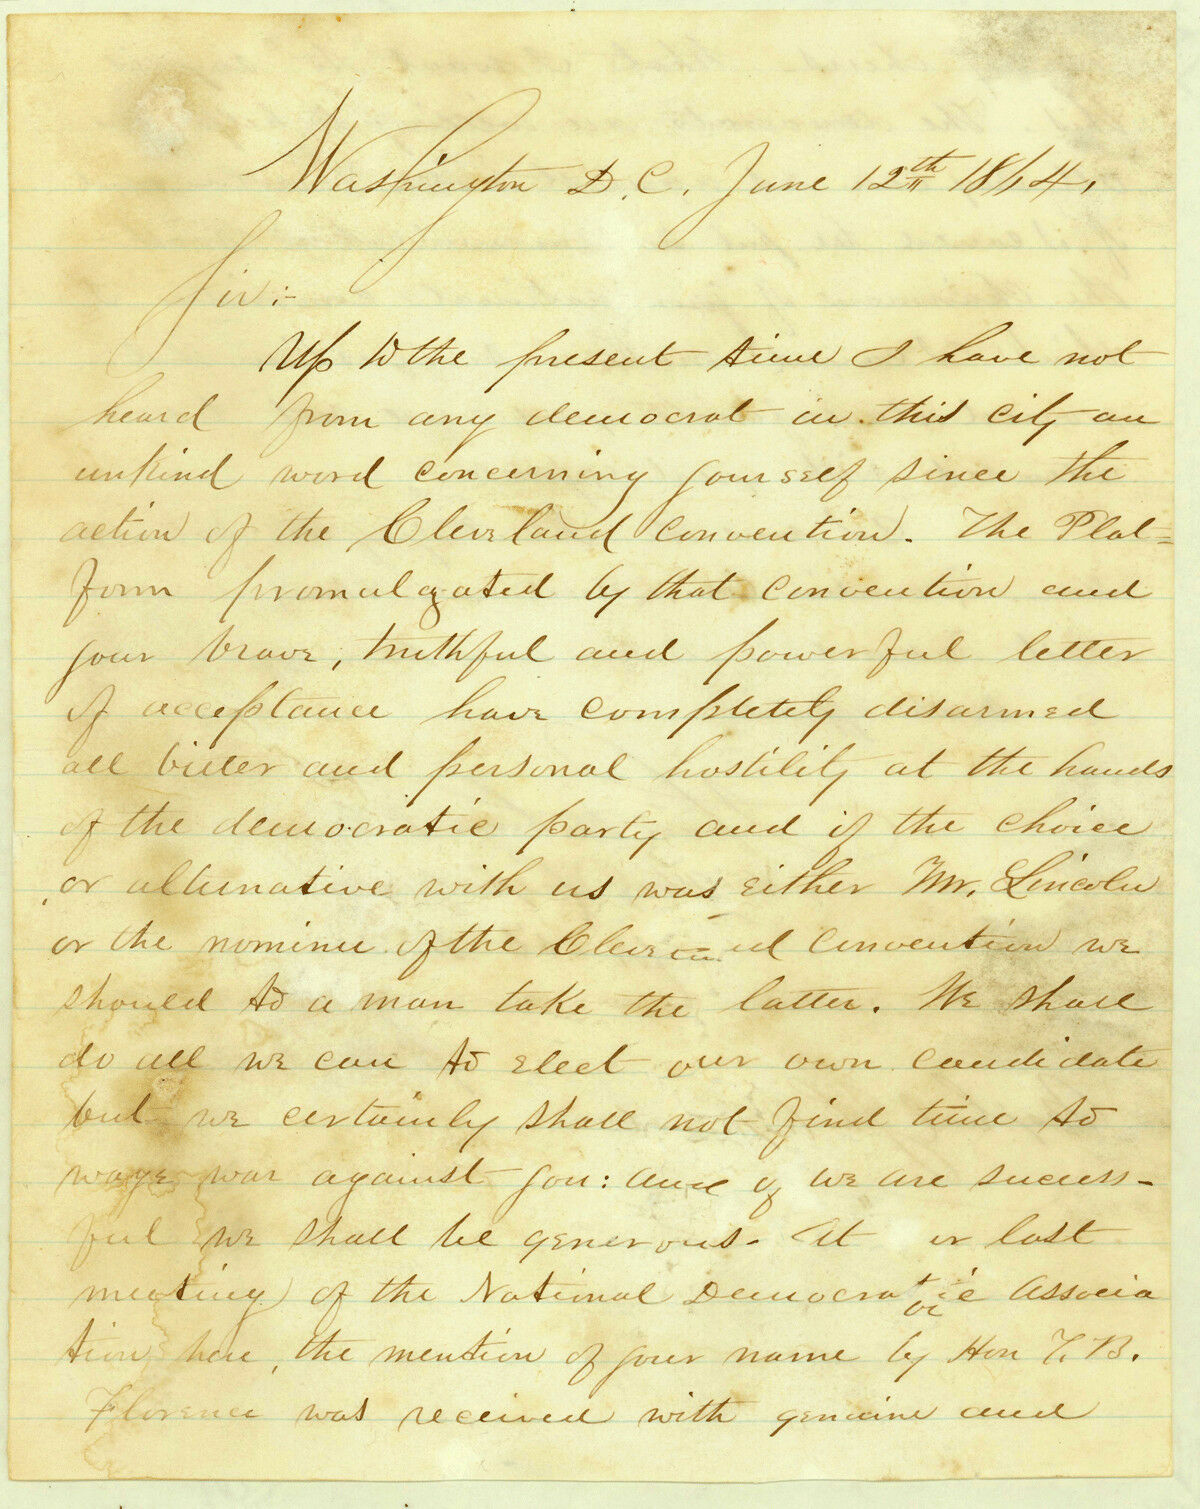 Washington D.C. June 12th 1864.
Sir:-
Up to the present time I have not
heard from any democrat in this city an
unkind word concerning yourself since the
action of the Cleveland convention. The Plat=
form promulgated by that convention and
your brave, truthful and powerful letter
of acceptance have completely disarmed
all bitter and personal hostility at the hands
of the democratic party and if the choice
or alternative with us was either Mr. Lincoln
or the nominee of the Cleveland Convention we
should to a man take the latter. We shall
do all we can to elect our own candidate
but we certainly shall not find time to
wage war against you: and if we are success-
ful we shall be generous. At our last
meeting of the National Democratic Associa
tion here, the mention of your name by Hon T. B.
Florence was received with genuine and